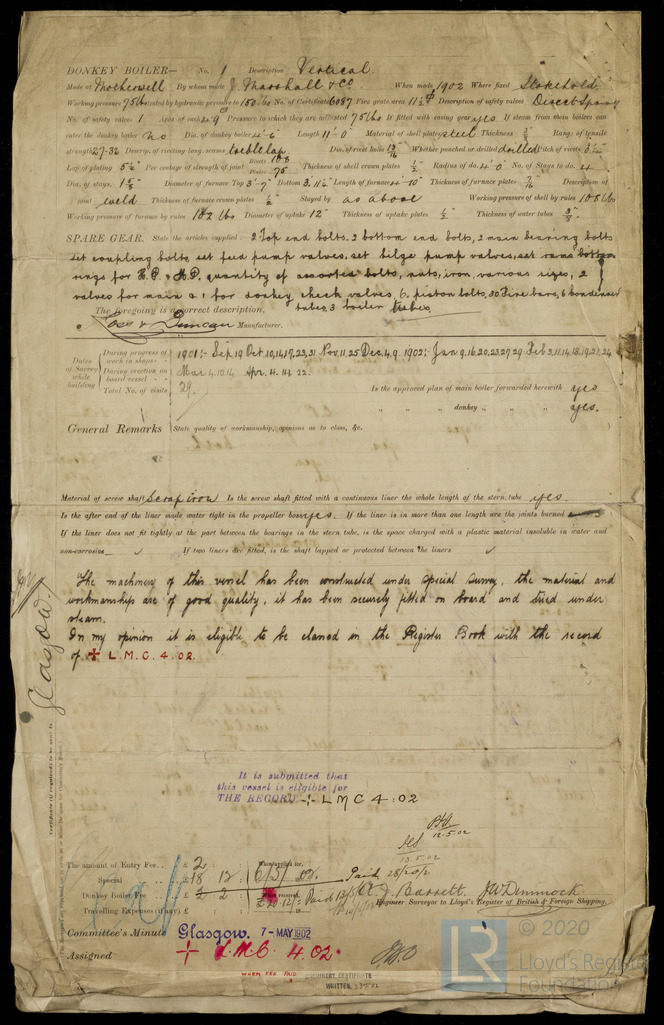 DONKEY BOILER— No. 1 Description Vertical
Made at Motherwell By whom made J. Marshall & Co When made 1902 Where fixed Stokehold
Working pressure 75 lb tested by hydraulic pressure to 150 lbs No. of Certificate 6087 Fire grate area 11½ Description of safety valves Direct Spring
No. of safety valves 1 Area of each 4.9 Pressure to which they are adjusted 75 lbs If fitted with easing gear yes If steam from main boilers can
enter the donkey boiler No Dia. of donkey boiler 4'-6" Length 11'-0" Material of shell plates steel Thickness Range of tensile
strength 27-32 Descrip. of riveting long. seams treble lap Dia. of rivet holes 13/16 Whether punched or drilled drilled Pitch of rivets
Lap of plating 5½" Per centage of strength of joint Rivets Plates 75 Thickness of shell crown plates ½" Radius of do. 4'0" No. of Stays to do. 4
Dia. of stays 1 5/8 Diameter of furnace Top 3'-7" Bottom 3'.11½" Length of furnace 4'-10" Thickness of furnace plates 7/16 Description of
joint weld Thickness of furnace crown plates ½" Stayed by as above Working pressure of shell by rules 105 lbs
Working pressure of furnace by rules 102 lbs Diameter of uptake 12" Thickness of uptake plates ½" Thickness of water tubes 3/8"
SPARE GEAR. State the articles supplied: 2 Top end bolts, 2 bottom end bolts, 2 main bearing bolts
set coupling bolts, set feed pump valves, set bilge pump valves, set
rings for H.P. & M.P. quantity of assorted bolts, nuts, iron, various sizes, 2
valves for main & 1 for donkey check valves, 6 piston bolts, 30 Fire bars, 6 condenser
tubes, 3 boiler tubes
The foregoing is a correct description,
Ross & Duncan Manufacturer.
Dates of Survey while building
During progress of work in shops 1901:- Sep 19 Oct 10,14,17,23,31 Nov 11,25 Dec 4,9. 1902:- Jan 9,16,20,23,27,29 Feb 3,11,14,18,19,21,24
During erection on board vessel Mar 4,10,14 Apr. 4,14,22.
Total No. of visits 29.
Is the approved plan of main boiler forwarded herewith yes
" " " donkey " " " yes.
General Remarks State quality of workmanship, opinions as to class, &c.
Material of screw shaft Scrap iron Is the screw shaft fitted with a continuous liner the whole length of the stern tube yes.
Is the after end of the liner made water tight in the propeller boss yes. If the liner is in more than one length are the joints burned
If the liner does not fit tightly at the part between the bearings in the stern tube, is the space charged with a plastic material insoluble in water and
non-corrosive ✓ If two liners are fitted, is the shaft lapped or protected between the liners ✓
The machinery of this vessel has been constructed under special survey, the material and
workmanship are of good quality, it has been securely fitted on board and tried under
steam.
In my opinion it is eligible to be classed in the Register Book with the record
of + L.M.C. 4.02.
Glasgow.
It is submitted that
this vessel is eligible for
THE RECORD + LMC 4:02
12.5.02
13.5.02
The amount of Entry Fee.. £ 2 When applied for,
Special .. £ 18 12 6/5/02. Paid
Donkey Boiler Fee £ 2 2 When received,
Travelling Expenses (if any) £
A. J. Barrett. J W Dimmock
Engineer Surveyor to Lloyd's Register of British & Foreign Shipping.
Committee's Minute Glasgow. 7 - MAY 1902
Assigned + L.M.C. 4.02.
WHEN FEE PAID
MACHINERY CERTIFICATE
WRITTEN
LR
© 2020
Lloyd's Register
Foundation